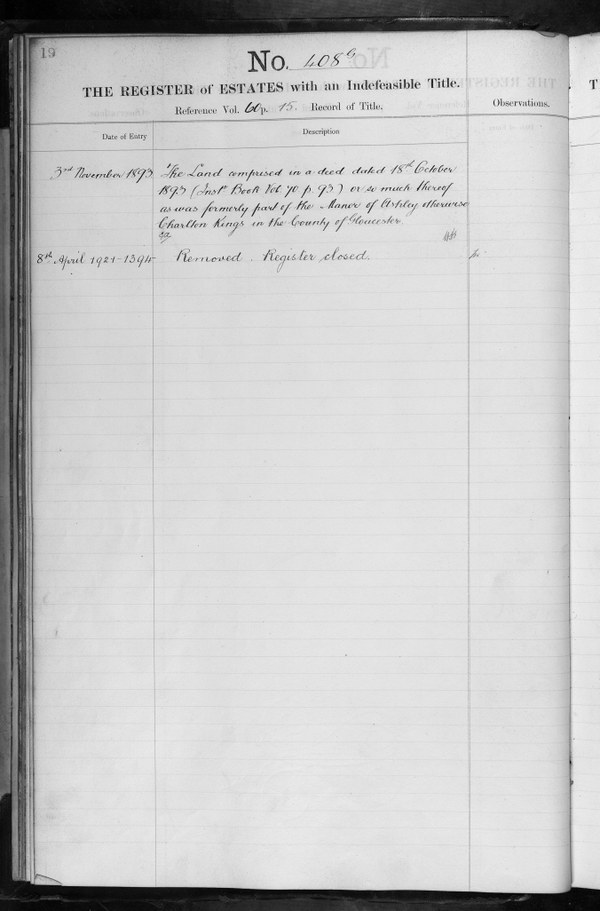 19
No. 408G
THE REGISTER of ESTATES with an Indefeasible Title.
Reference Vol. 60 p. 15. Record of Title.
Observations.
Date of Entry
Description
3rd November 1893
The Land comprised in a deed dated 18th October
1893 (Inst. Book Vol 70 p. 93) or so much thereof
as was formerly part of the Manor of Ashley otherwise
Charlton Kings in the County of Gloucester.
8th April 1921-1394
Removed. Register closed.